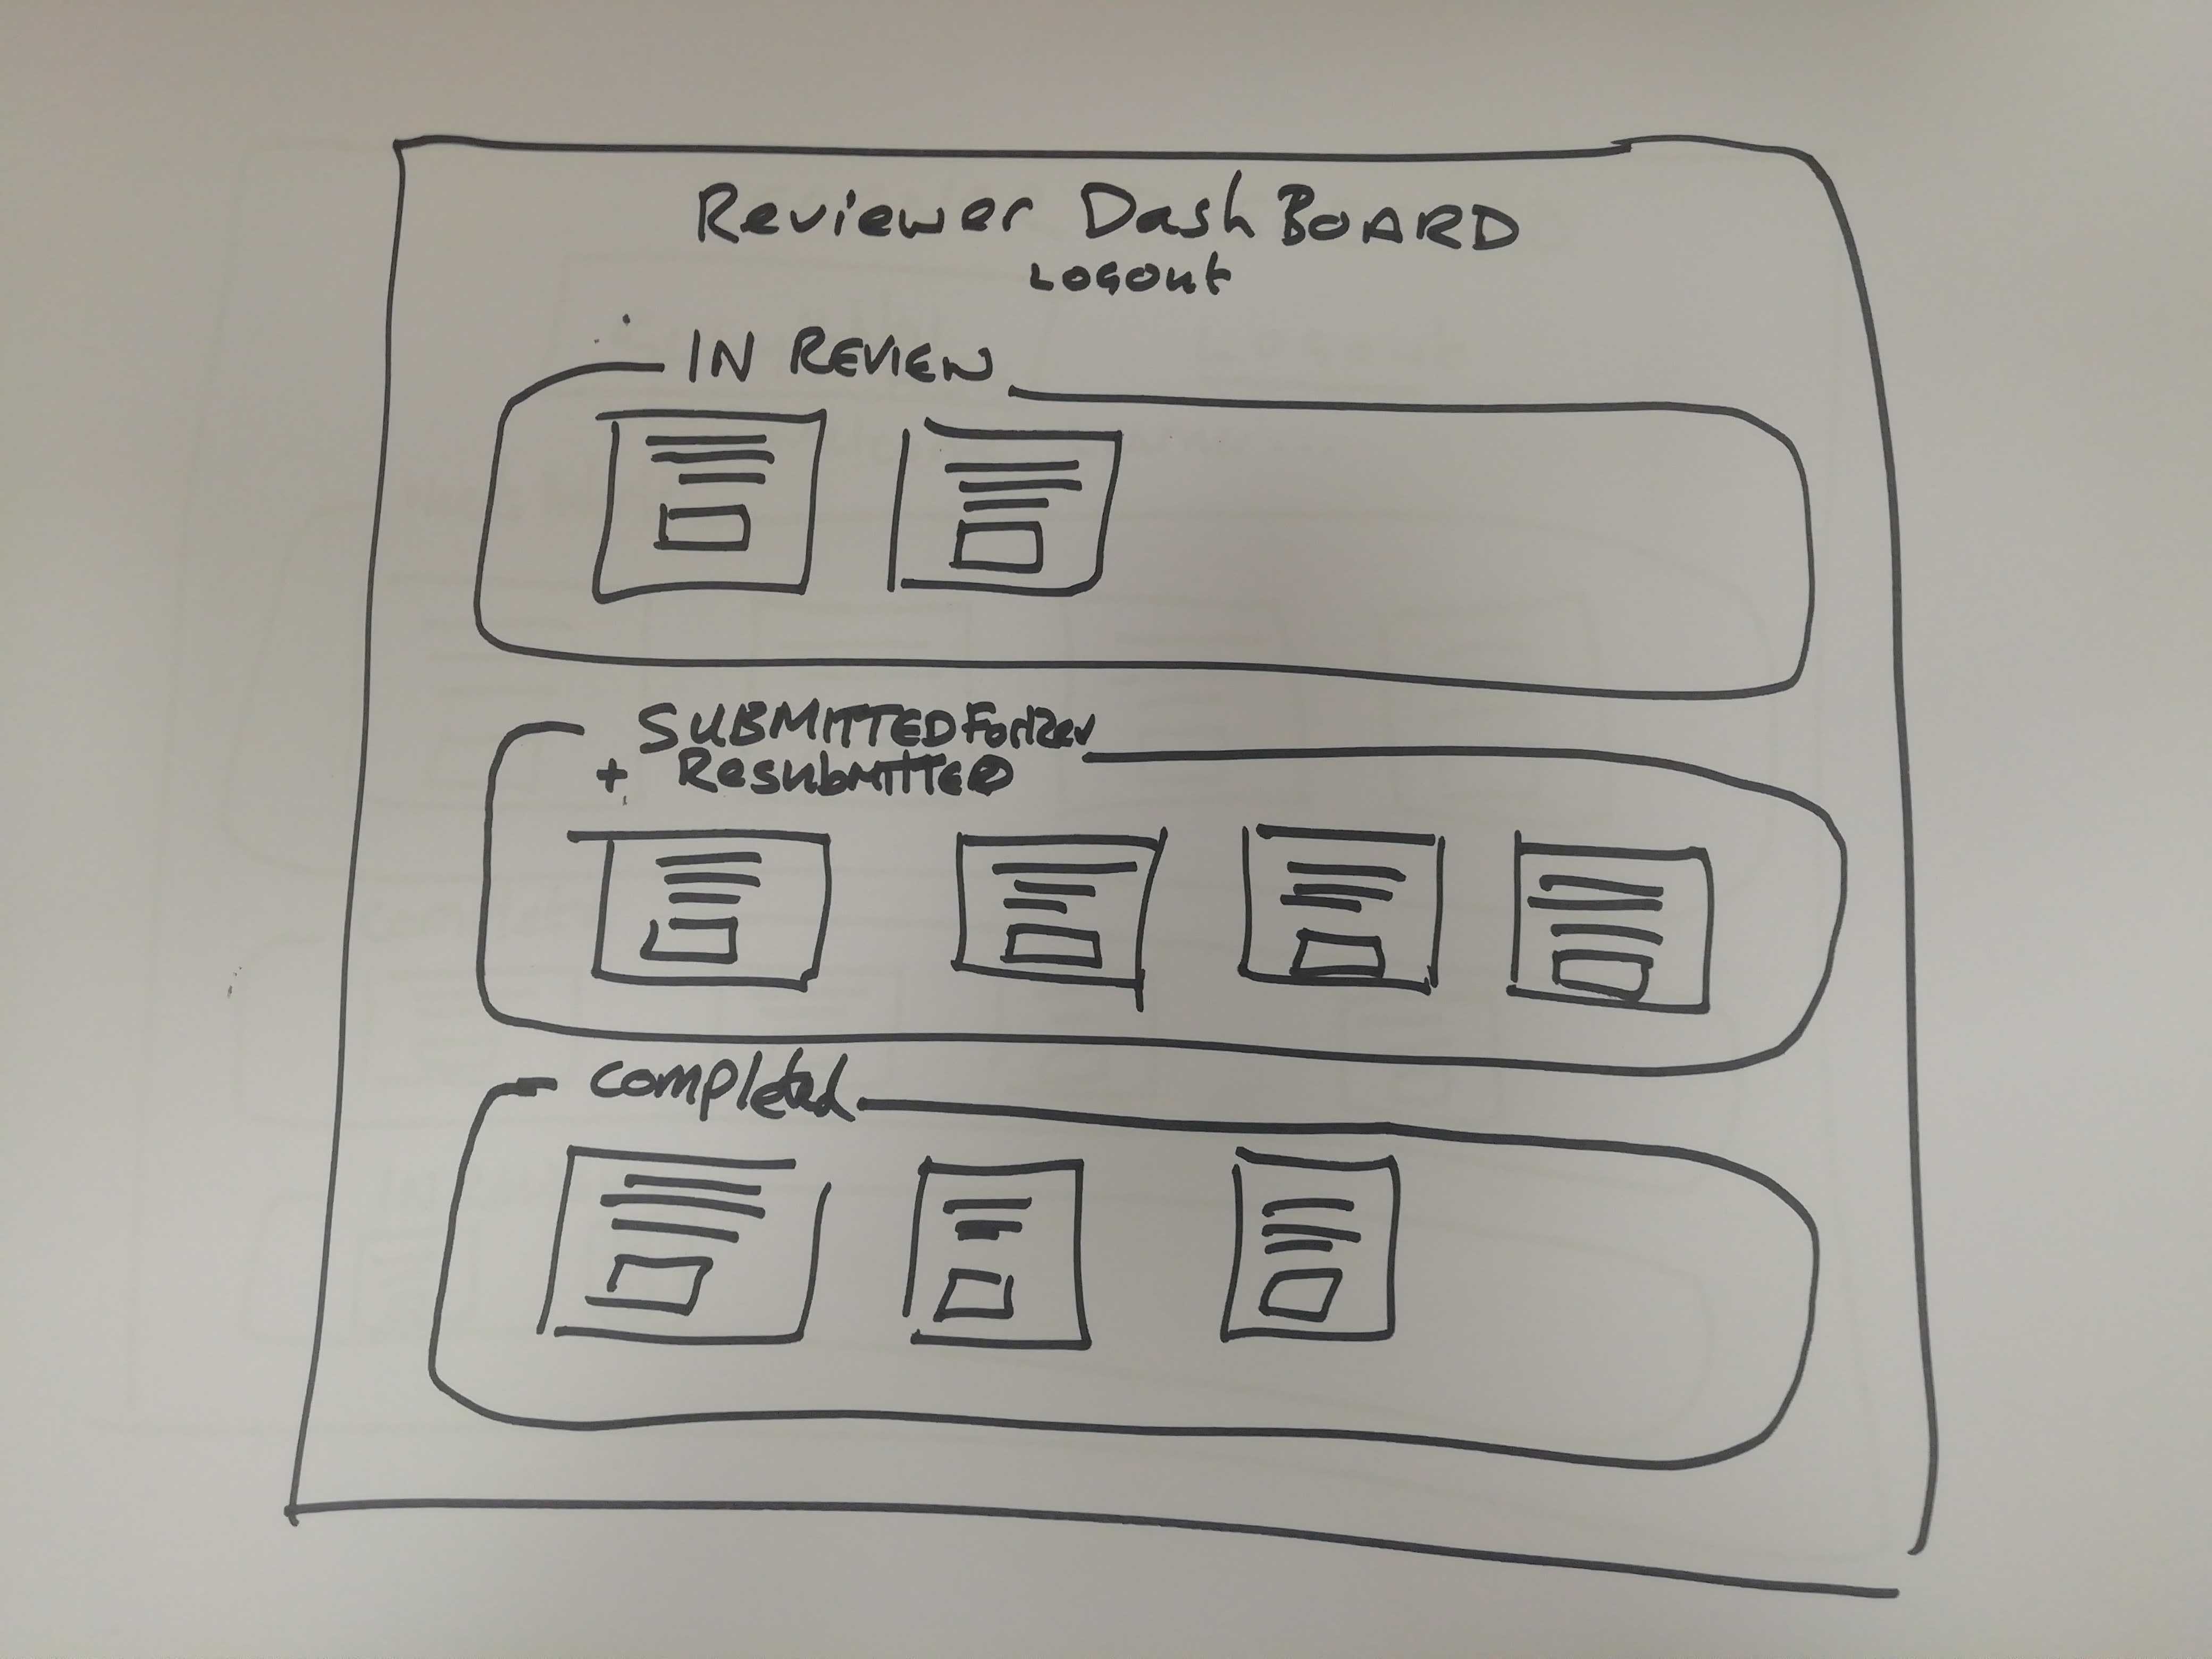 Reviewer DashBOARD
Logout
IN REVIEW
SUBMITTED For Rev
+ ResubmitteD
completed